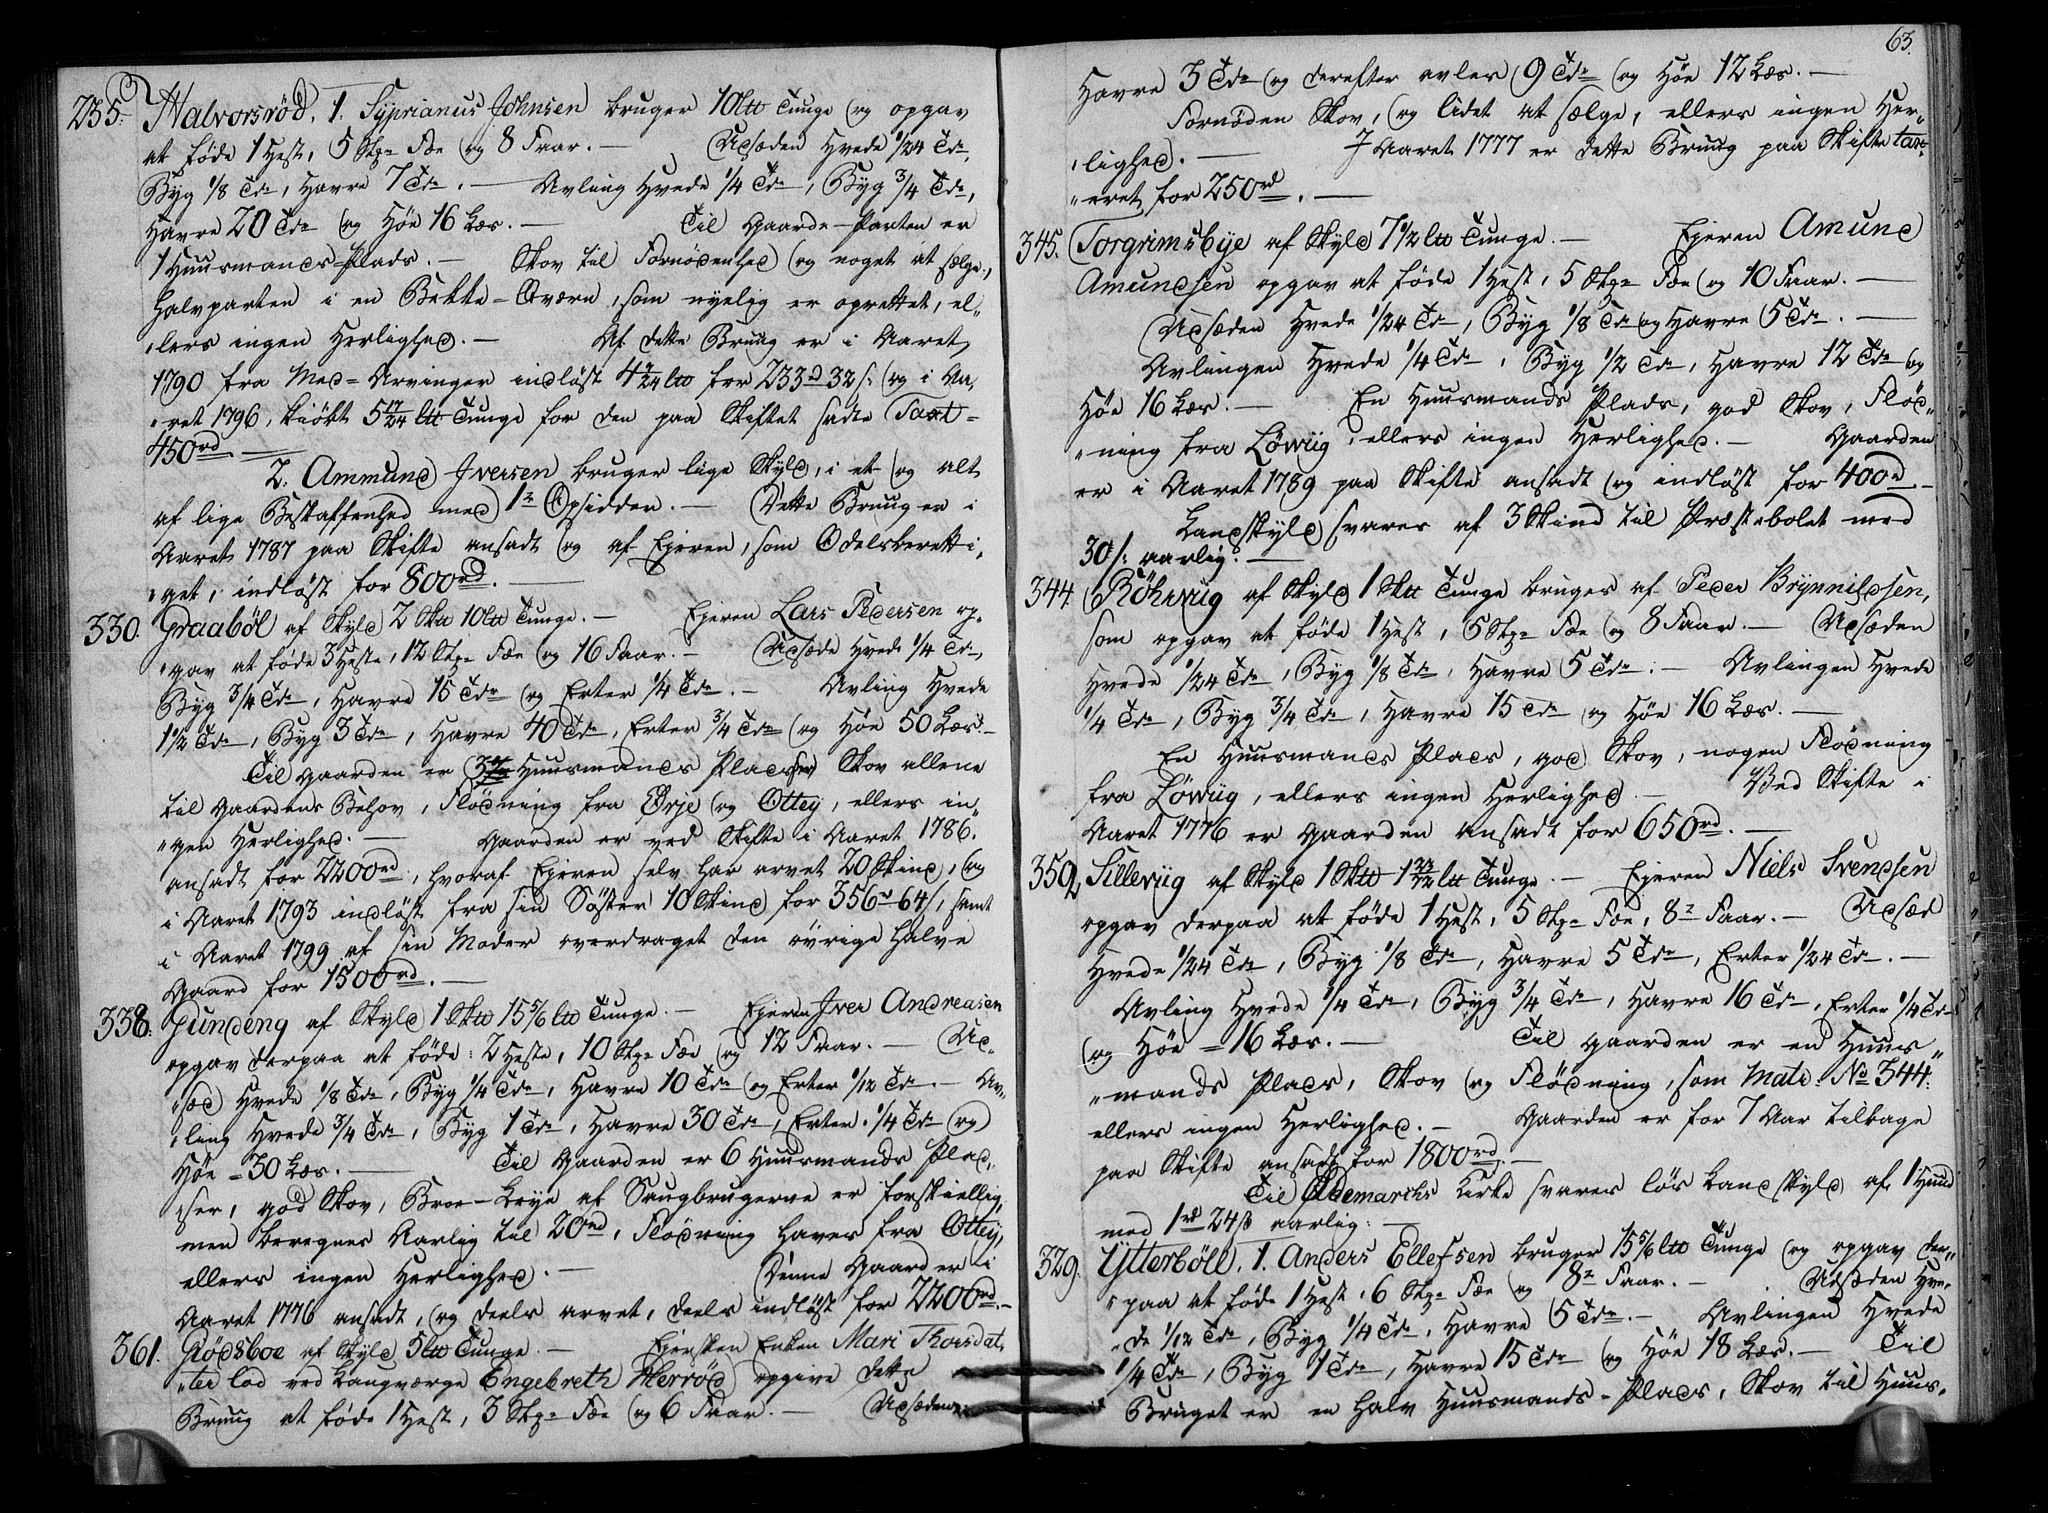 235. Halvorsröd, 1. Syprianus Johnsen bruger 10 ltt Tunge og opgav
at föde 1 Hest, 5 Stkr Fæe og 8 Faar. — Udsæden Hvede 1/24 Tde,
Byg 1/8 Tde, Havre 7 Tde. — Avling Hvede 1/4 Tde, Byg 3/4 Tde,
Havre 20 Tde og Höe 16 Læs. — Til Gaarde-Parten er
1 Huusmands-Plads. — Skov til Fornödenhed og noget at sælge,
halvparten i en Bekke-Qværn, som nyelig er oprettet, el„
„lers ingen Herlighed. — Af dette Bruug er i Aaret
1790 fra Med-Arvinger indlöst 4 7/24 ltt for 233 rd 32 s: og i Aa„
„ret 1796, kiöbt 5 17/24 ltt Tunge for den paa Skiftet satte Taxt =
450 rd. —
2. Ammund Iversen bruger lige Skyld, i et og alt
af lige Beskaffenhed med 1r Opsidder. — Dette Bruug er i
Aaret 1787 paa Skifte ansadt og af Ejeren, som Odelsberetti„
„get, indlöst for 800 rd. —
330. Graaböl af Skyld 2 Sktt 10 ltt Tunge. — Ejeren Lars Pedersen op„
„gav at föde 3 Heste, 12 Stkr Fæe og 16 Faar. — Udsæde Hvede 1/4 Tde,
Byg 3/4 Tde, Havre 15 Tde og Erter 1/4 Tde. — Avling Hvede
1 1/2 Tde, Byg 3 Tde, Havre 40 Tde, Erter 3/4 Tde og Höe 50 Læs. —
Til Gaarden er 3 Huusmands Pladser Skov allene
til Gaardens Behov, Flödning fra Ørje og Ottey, ellers in„
„gen Herlighed. — Gaarden er ved Skifte i Aaret 1786
ansadt for 2200 rd, hvoraf Ejeren selv har arvet 20 Skind, og
i Aaret 1793 indlöst fra sin Söster 10 Skind for 356 rd 64 s, samt
i Aaret 1799 af sin Moder overdraget den övrige halve
Gaard for 1500 rd. —
338. Gundeng af Skyld 1 Sktt 15 5/6 ltt Tunge. — Ejeren Iver Andreasen
opgav derpaa at föde: 2 Heste, 10 Stkr Fæe og 12 Faar. — Ud„
„sæd Hvede 1/8 Tde, Byg 1/4 Tde, Havre 10 Tde og Erter 1/12 Tde. — Av„
„ling Hvede 3/4 Tde, Byg 1 Tde, Havre 30 Tde, Erter 1/4 Tde og
Höe = 30 Læs. — Til Gaarden er 6 Huusmands Plad„
„ser, god Skov, Broe-Leye af Saugbrugerne er forskiellig,
men beregnes Aarlig til 20 rd, Flödning haves fra Ottey,
ellers ingen Herlighed. — Denne Gaard er i
Aaret 1776 ansadt, og deels arvet, deels indlöst for 2200 rd. —
361. Rödsboe af Skyld 5 ltt Tunge. — Ejersken Enken Mari Thorsdat„
„ter lod ved Laugværge Engebreth Herröd opgive dette
Bruug at föde 1 Hest, 3 Stkr Fæe og 6 Faar. — Udsæden
63.
Havre 3 Tde og derefter avler 9 Tde og Höe 12 Læs. —
Fornöden Skov, og lidet at sælge, ellers ingen Her„
„lighed. — I Aaret 1777 er dette Bruug paa Skifte tax„
„eret for 250 rd. —
345. Torgrimsbye af Skyld 7 1/2 ltt Tunge. — Ejeren Amund
Amundsen opgav at föde 1 Hest, 5 Stkr Fæe og 10 Faar. —
Udsæden Hvede 1/24 Tde, Byg 1/8 Tde og Havre 5 Tde. —
Avlingen Hvede 1/4 Tde, Byg 1/2 Tde, Havre 12 Tde og
Höe 16 Læs. — En Huusmands Plads, god Skov, Flöd„
„ning fra Löwiig, ellers ingen Herlighed. — Gaarden
er i Aaret 1789 paa Skifte ansadt og indlöst for 400 rd. —
Landskyld svares af 3 Skind til Præstebolet med
30 s: aarlig: —
344. Röhrviig af Skyld 1 Sktt Tunge bruges af Peder Brynnildsen,
som opgav at föde 1 Hest, 5 Stkr Fæe og 8 Faar. — Udsæden
Hvede 1/24 Tde, Byg 1/8 Tde, Havre 5 Tde: — Avlingen Hvede
1/4 Tde, Byg 3/4 Tde, Havre 15 Tde og Höe 16 Læs. —
En Huusmands Plads, god Skov, nogen Flödning
fra Löwiig, ellers ingen Herlighed. — Ved Skifte i
Aaret 1776 er Gaarden ansadt for 650 rd. —
350. Silleviig af Skyld 1 Sktt 1 23/24 ltt Tunge. — Ejeren Niels Svendsen
opgav derpaa at föde 1 Hest, 5 Stkr Fæe, 8r Faar. — Udsæd
Hvede 1/24 Tde, Byg 1/8 Tde, Havre 5 Tde, Erter 1/24 Tde. —
Avling Hvede 1/4 Tde, Byg 3/4 Tde, Havre 16 Tde, Erter 1/4 Tde
og Höe = 16 Læs. — Til Gaarden er en Huus„
„mands Plads, Skov og Flödning, som Matr: No 344:
ellers ingen Herlighed. — Gaarden er for 7 Aar tilbage
paa Skifte ansadt for 1800 rd. —
Til Ødemarchs Kirke svares lös Landskyld af 1 Huud
med 1 rd 24 s aarlig: —
329. Ytterböll, 1. Anders Ellefsen bruger 15 5/6 ltt Tunge og opgav der„
„paa at föde 1 Hest, 6 Stkr Fæe og 8r Faar. — Udsæden Hve„
„de 1/12 Tde, Byg 1/4 Tde, Havre 5 Tde. — Avlingen Hvede
1/4 Tde, Byg 1 Tde, Havre 15 Tde og Höe 18 Læs. — Til
Bruget er en halv Huusmands-Plads, Skov til Huus„